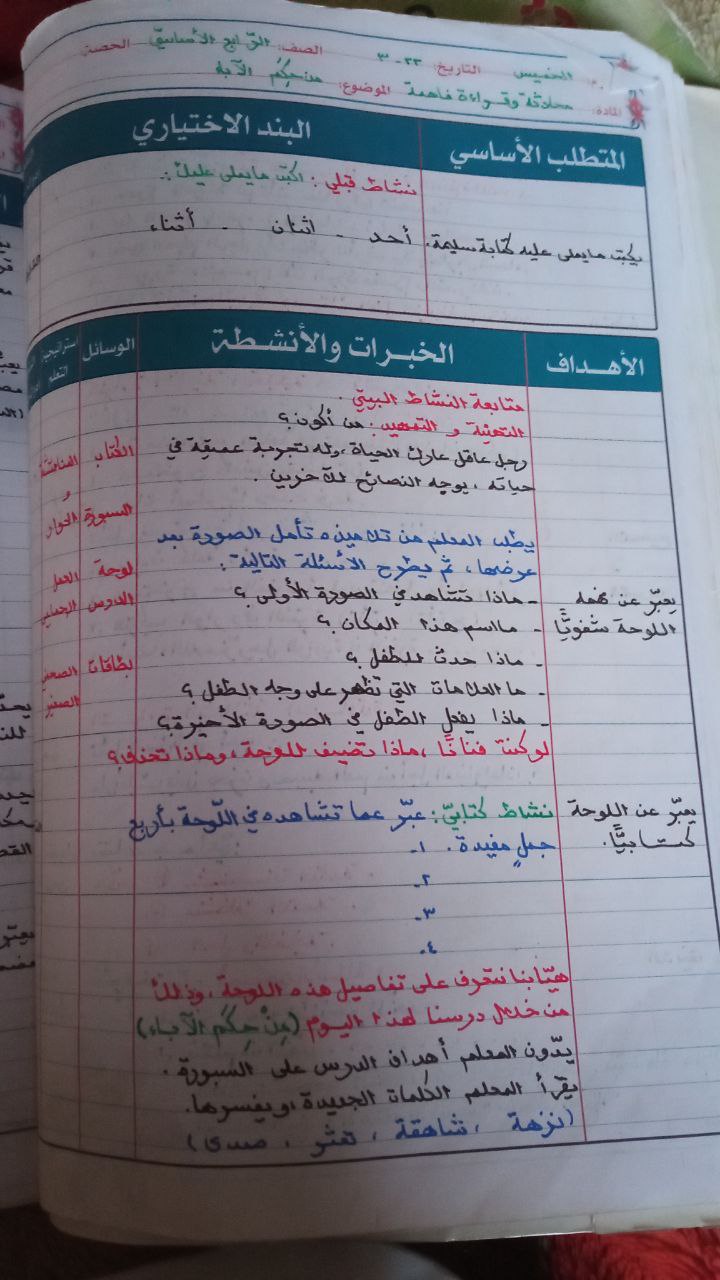 اليوم: الخميس التاريخ: ٢٣-٣ الصف: الرابع الأساسيّ الحصة
المادة: محادثة وقراءة فاهمة الموضوع: من حِكَم الآباء
المتطلب الأساسي البند الاختياري
نشاط قبلي: اكتب ما يملى عليك:
يكتب ما يملى عليه كتابة سليمة. أحد - اثنان - أثناء
الأهداف الخبرات والأنشطة الوسائل استراتيجية التعلم
متابعة النشاط البيتي.
التهيئة و التمهيد: من أكون؟
رجل عاقل عارك الحياة، وله تجربة عميقة في الكتاب المناقشة
حياته، يوجه النصائح للآخرين. و
السبورة الحوار
يطلب المعلم من تلاميذه تأمل الصورة بعد
عرضها، ثم يطرح الأسئلة التالية: لوحة العمل
يعبّر عن فهمه - ماذا تشاهد في الصورة الأولى؟ الدرس الجماعي
اللوحة شفويًّا - ما اسم هذا المكان؟
- ماذا حدث للطفل؟ بطاقات
- ما العلامات التي تظهر على وجه الطفل؟
- ماذا يفعل الطفل في الصورة الأخيرة؟
لو كنت فنانًا، ماذا تضيف للوحة، وماذا تحذف؟
يعبّر عن اللوحة نشاط كتابيّ: عبّر عما تشاهده في اللّوحة بأربع
كتابيًّا. جملٍ مفيدة. ١-
٢-
٣-
٤-
هيّا بنا نتعرف على تفاصيل هذه اللوحة، وذلك
من خلال درسنا لهذا اليوم (مِنْ حِكَم الآباء)
يدّون المعلم أهداف الدرس على السبورة.
يقرأ المعلم الكلمات الجديدة، ويفسرها.
(نزهة، شاهقة، تعثر، صدى)